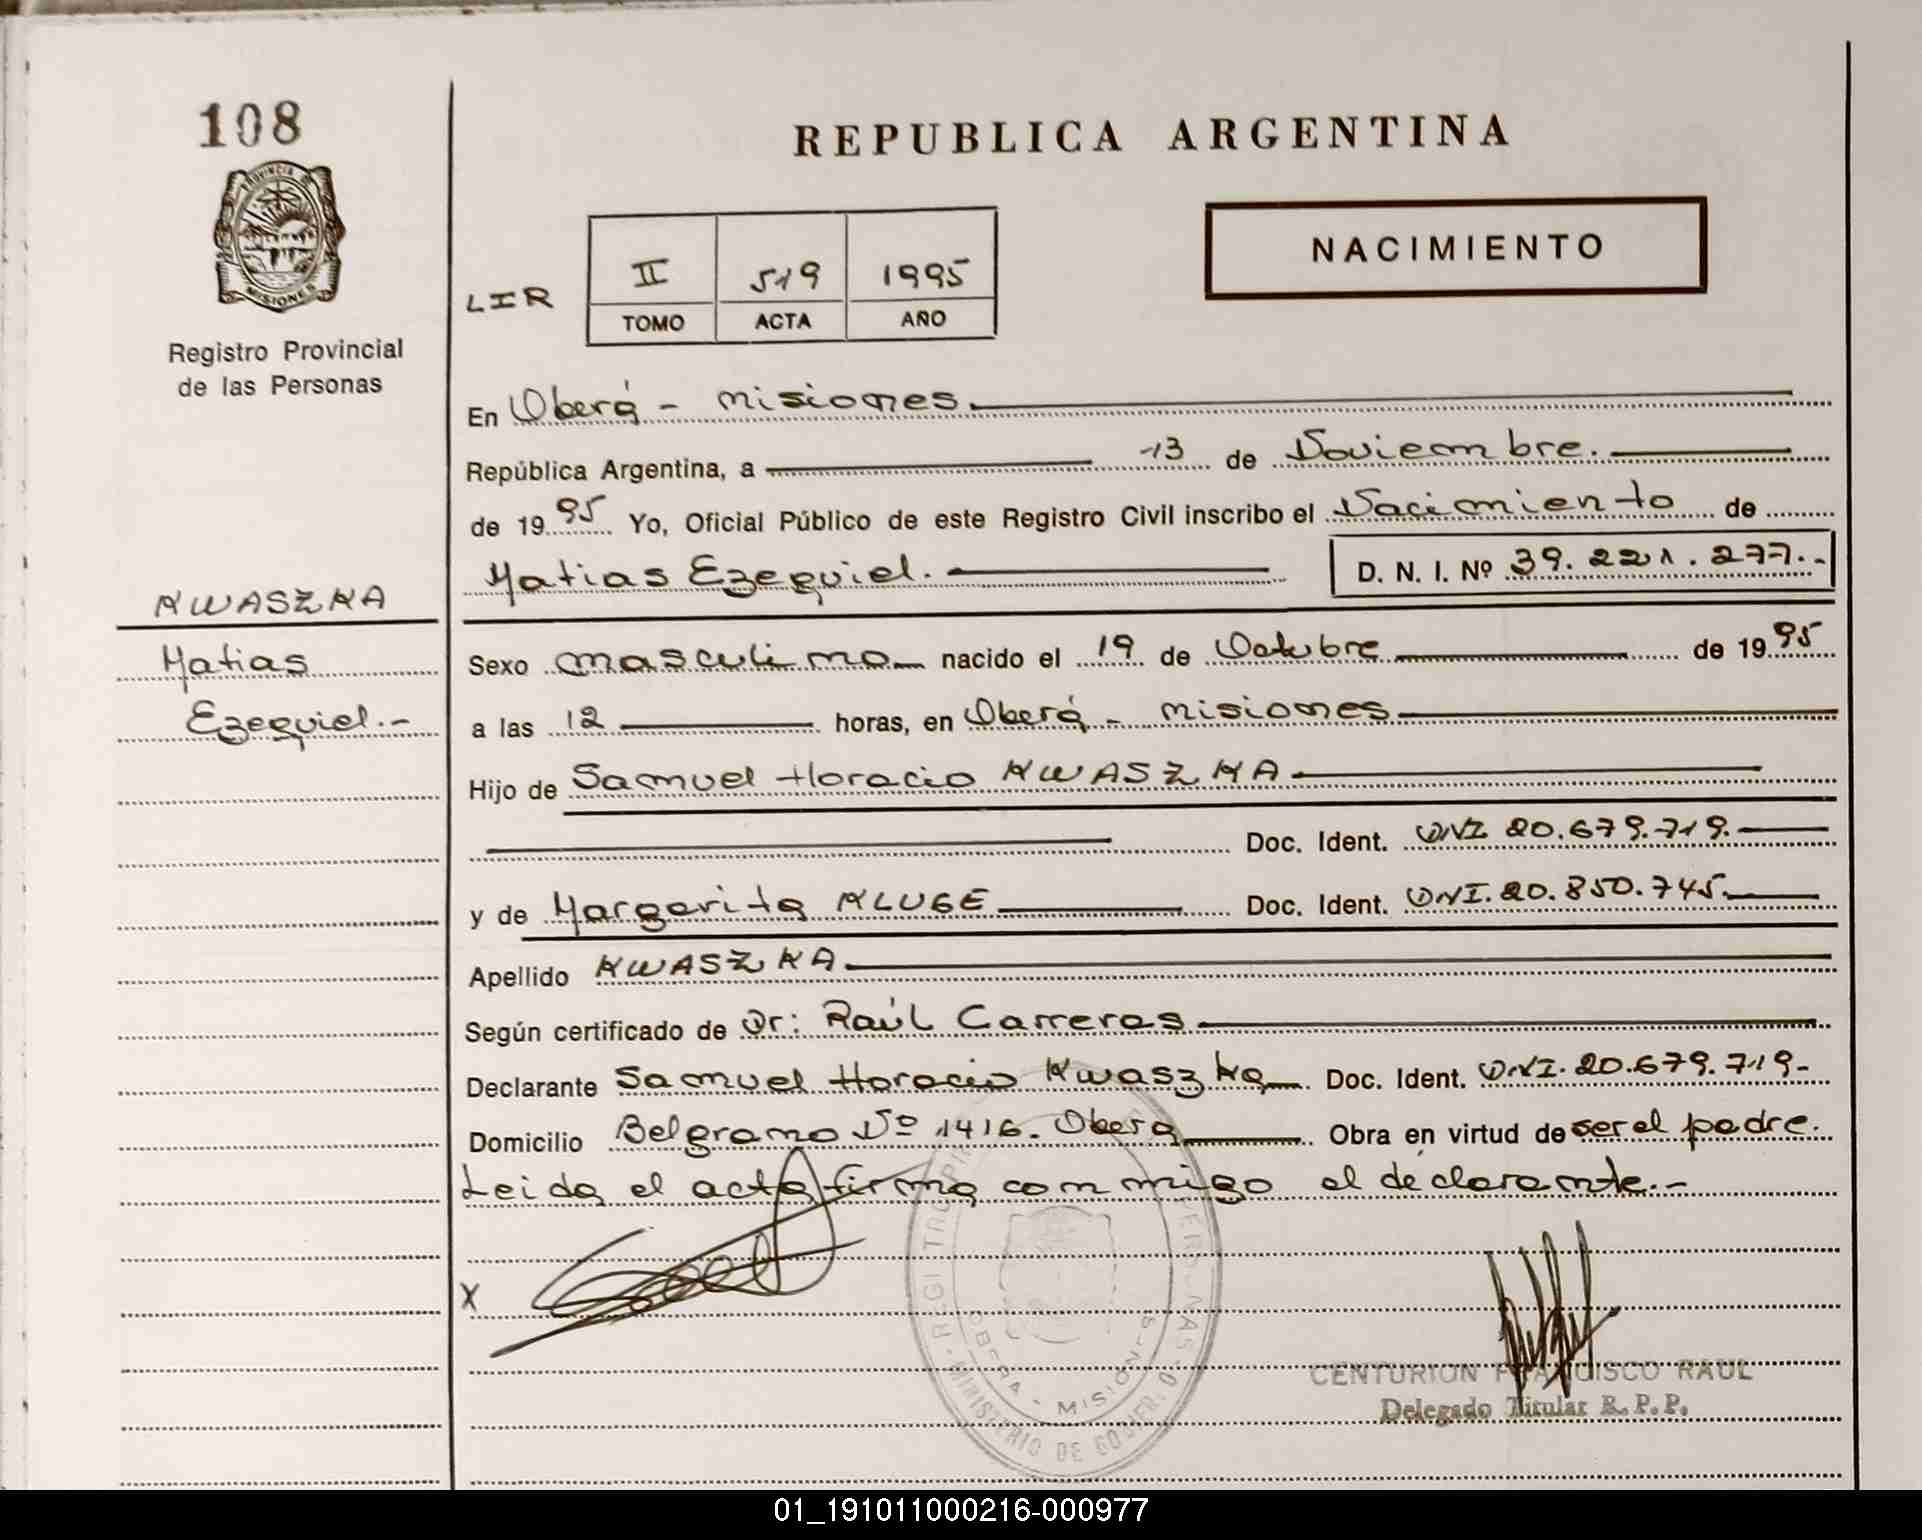 108
REPUBLICA ARGENTINA
NACIMIENTO
PROVINCIA DE
MISIONES
Registro Provincial
de las Personas
LIR
II 519 1995
TOMO ACTA AÑO
En Oberá - Misiones.
República Argentina, a 13 de Noviembre.
de 1995 Yo, Oficial Público de este Registro Civil inscribo el Nacimiento de
Matias Ezequiel. D. N. I. Nº 39.221.277.-
KWASZKA
Matias
Ezequiel.-
Sexo masculino nacido el 19 de Octubre de 1995
a las 12 horas, en Oberá - Misiones
Hijo de Samuel Horacio KWASZKA
Doc. Ident. DNI 20.679.719.
y de Margarita KLUGE Doc. Ident. DNI. 20.850.745.
Apellido KWASZKA
Según certificado de Dr: Raúl Carreras
Declarante Samuel Horacio Kwaszka Doc. Ident. DNI. 20.679.719-
Domicilio Belgrano Nº 1416. Oberá Obra en virtud de ser el padre.
Leida el acta firma conmigo el declarante.-
X
OBERA - MISIONES
MINISTERIO DE
CENTURION FRANCISCO RAUL
Delegado Titular R.P.P.
01_191011000216-000977